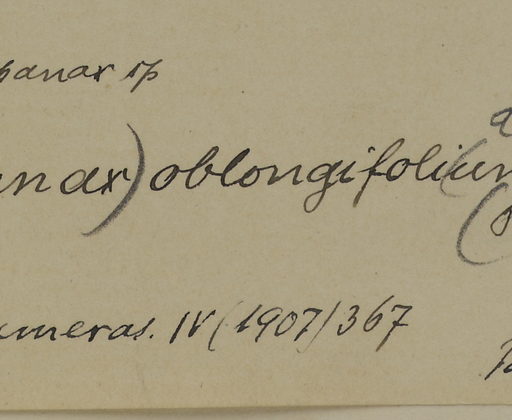 panax sp
nax) oblongifolium
umeras. IV (1907) 367